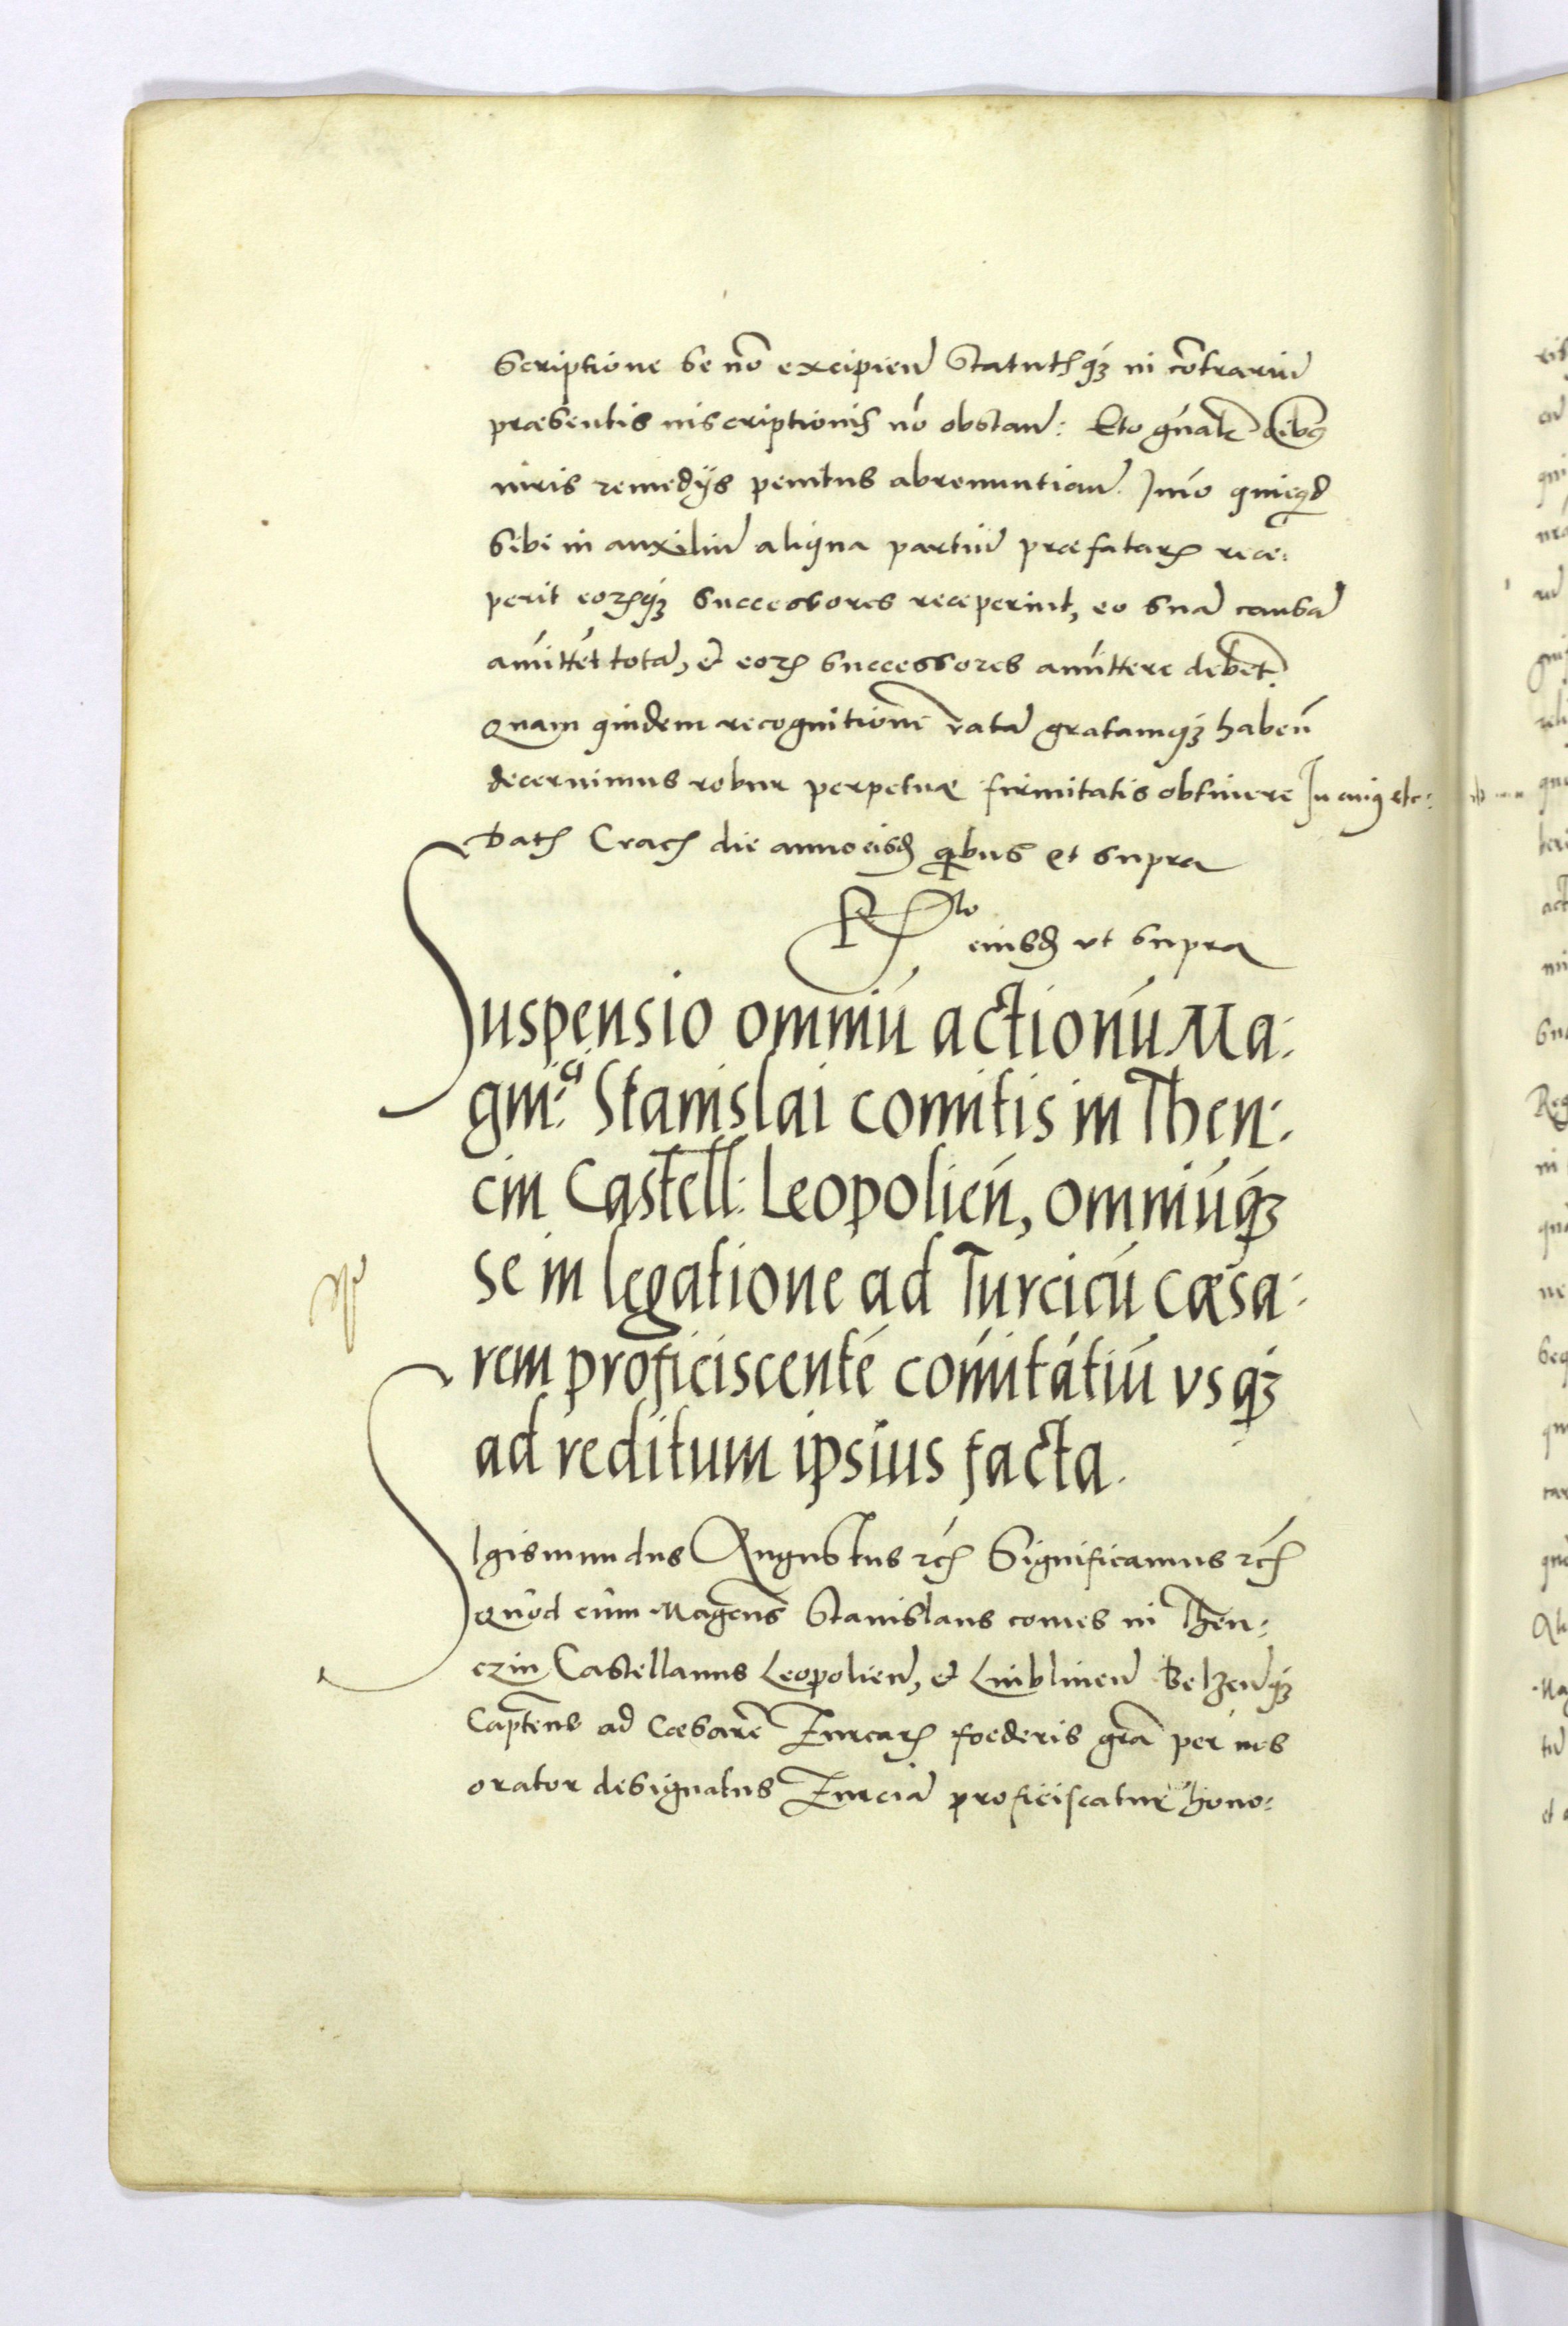 scriptione se nõ excipieñ Statutisq3 in cõtrariũ
præsentis inscriptionis nõ obstañ: Et gñalr oĩbus
iuris remedijs penitus abrenuntiañ. Imo quicqd
sibi in auxiliũ aliqua partiũ præfatarꝫ rece:
perit eorꝫq3 successores receperint, eo suã causã
amittet totã, et eorꝫ successores amittere debet.
Quam quidem recognitionẽ ratã gratamq3 habeñ
decernimus robur perpetuæ firmitatis obtinere In cuiꝯ etc:
Datꝫ Cracꝫ die anno eisdꝫ qꝫbus vt supra
Rlo
eiusdꝫ vt supra
Suspensio omniũ actionũ Ma:
gni:ci Stanislai comitis in Then:
cin Castell: Leopolień, omniũq3
se in legatione ad Turcicũ Cæsa:
rem proficiscentẽ comitãtiũ vsq3
ad reditum ipsius facta.
SIgismundus Augustus rcꝫ Significamus rcꝫ
Quod cum Magcus Stanislaus comes in Then:
czin Castellanus Leopolieñ, et Lublineñ Belzeñq3
Capteus ad Cæsarẽ Turcarꝫ foederis grã per nos
orator designatus Turciã proficiscatur hono: